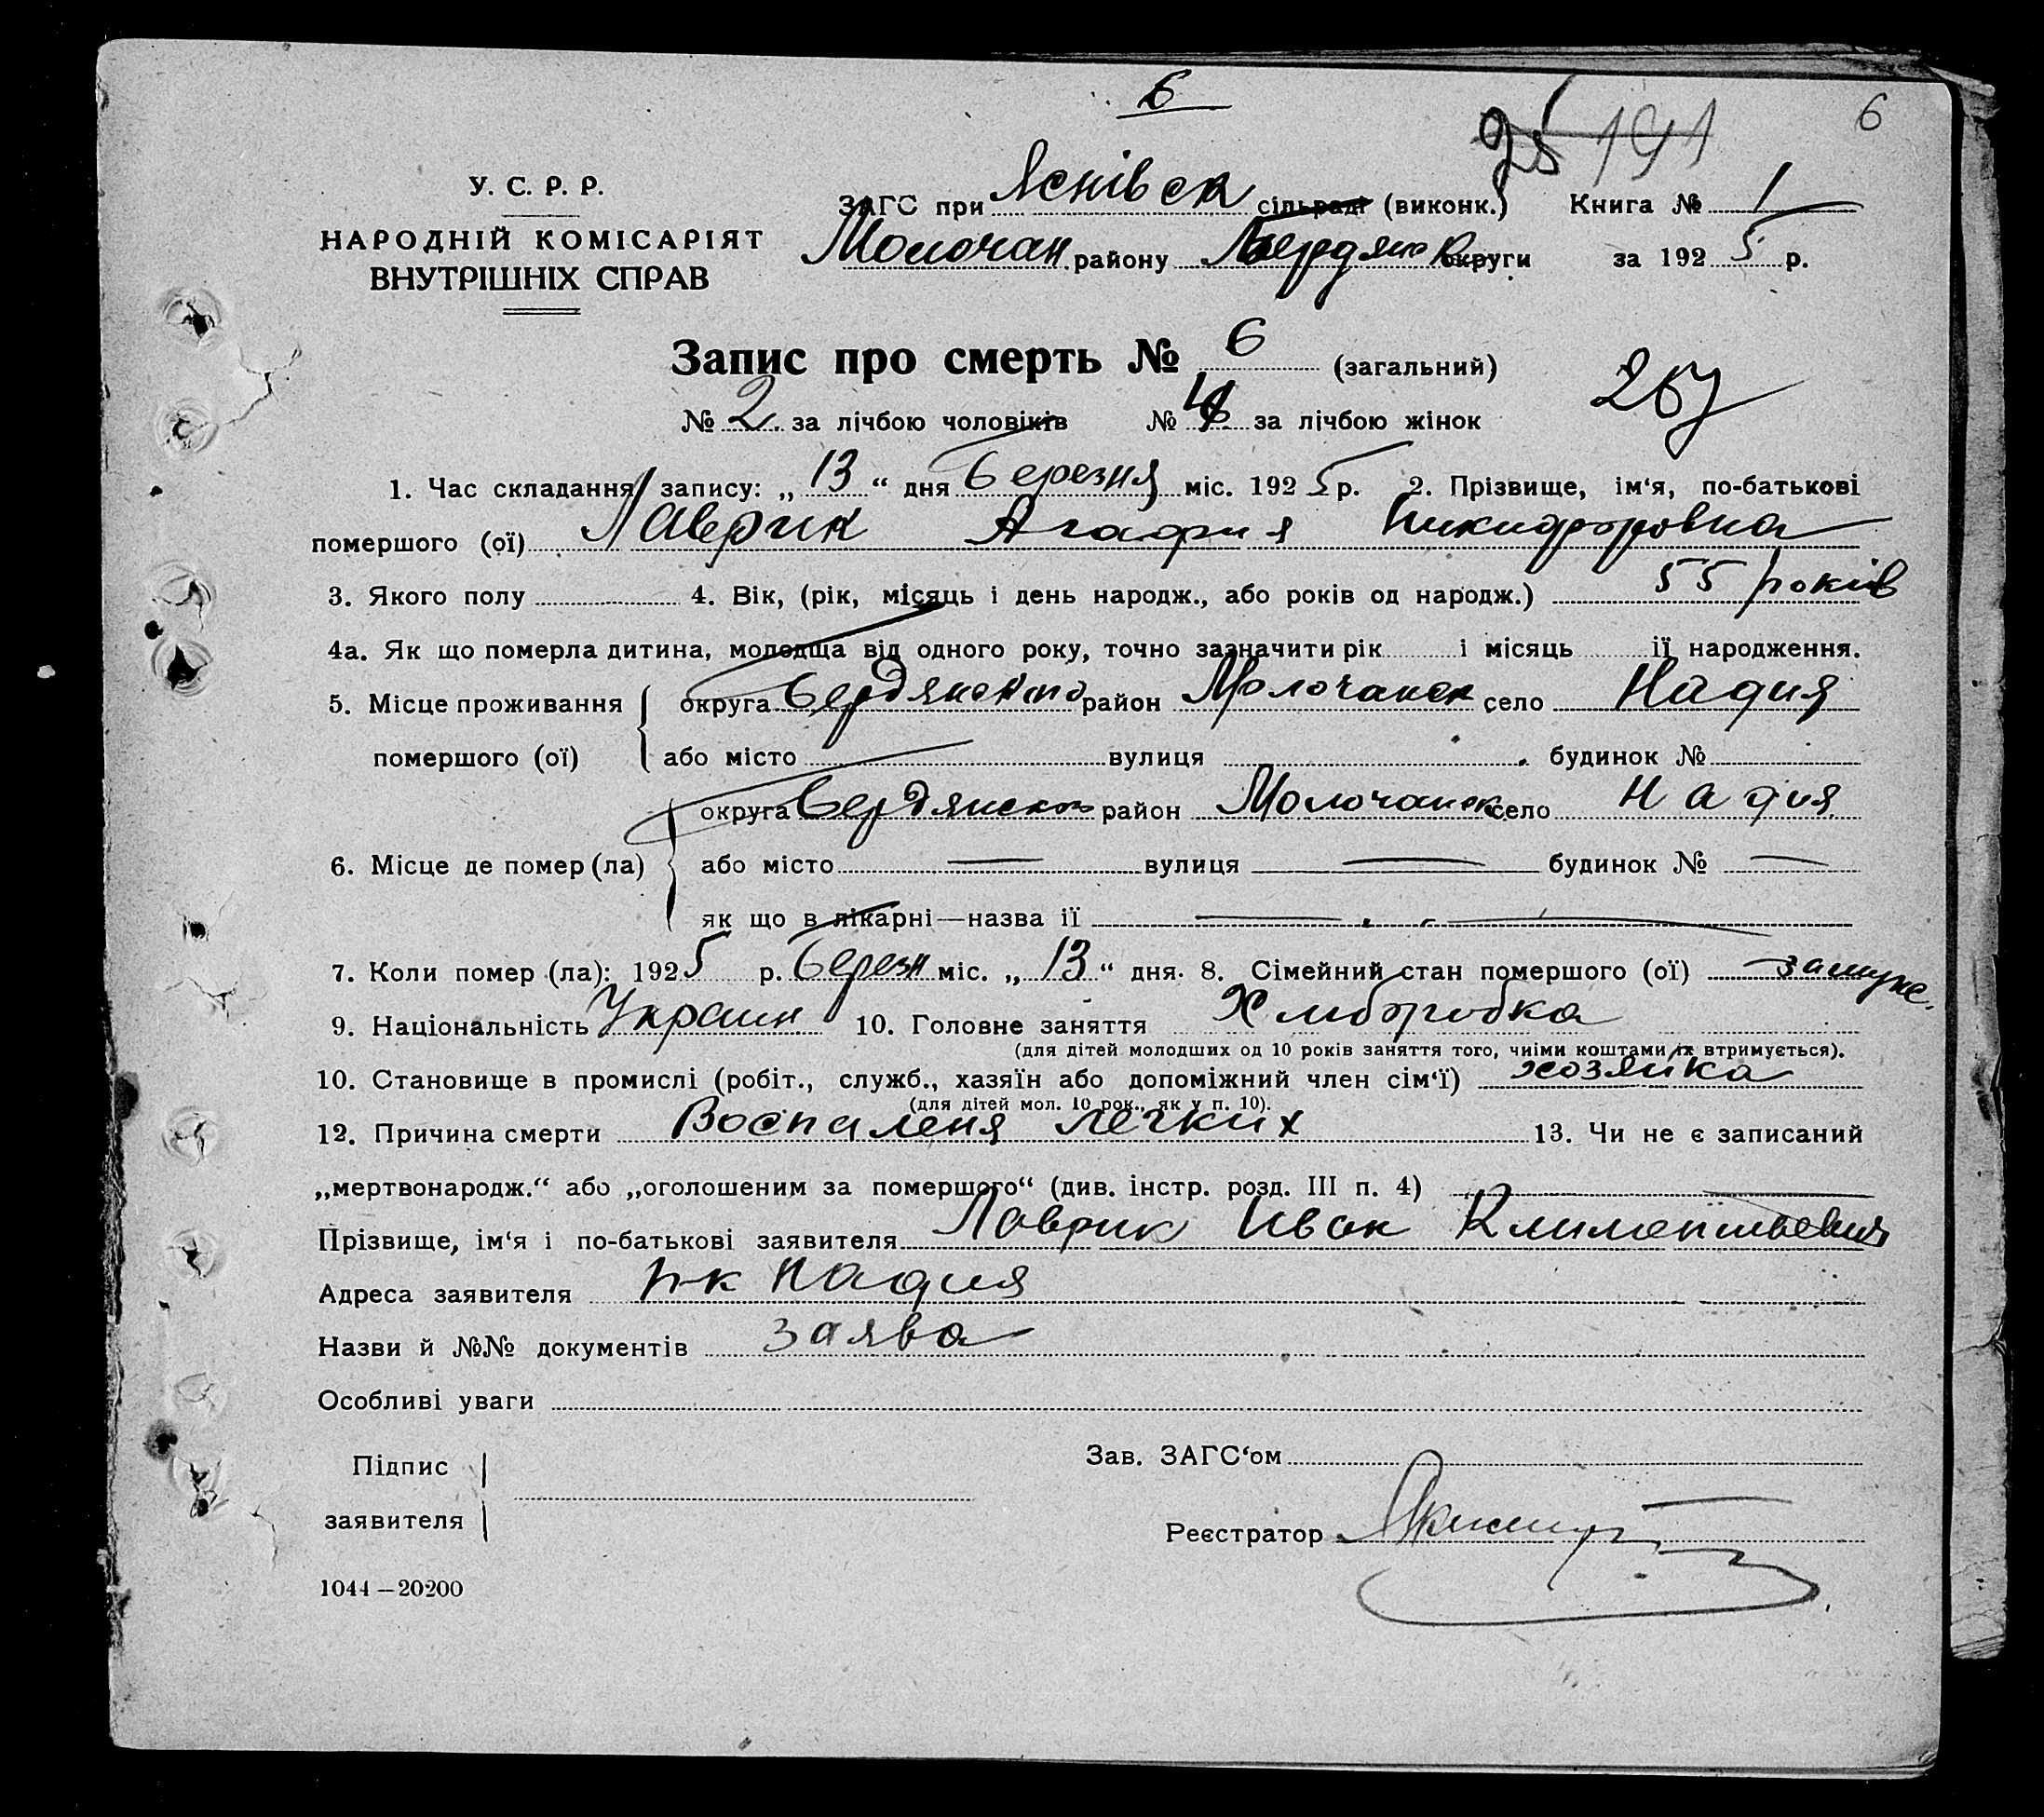 6
25 191 6
У. С. Р. Р.
НАРОДНІЙ КОМІСАРІЯТ
ВНУТРІШНІХ СПРАВ
ЗАГС при Яснівск сільраді (виконк.) Книга № 1
Молочан району Бердянс округи за 1925 р.
Запис про смерть № 6 (загальний)
№ 2 за лічбою чоловіків № 4 за лічбою жінок 267
1. Час складання запису: „13“ дня березня міс. 1925 р. 2. Прізвище, ім‘я, по-батькові
помершого (ої) Лаврик Агафия Никифоровна
3. Якого полу 4. Вік, (рік, місяць і день народж., або років од народж.) 55 років
4а. Як що померла дитина, молодща від одного року, точно зазначити рік і місяць ії народження.
5. Місце проживання округа район Молочанск село Надия
помершого (ої) або місто вулиця будинок №
округа Бердянско район Молочанск село Надия
6. Місце де помер (ла) або місто — вулиця — будинок № —
як що в лікарні—назва ії —
7. Коли помер (ла): 1925 р. березн міс. „13“ дня. 8. Сімейний стан помершого (ої) замуж.
9. Національність Украин 10. Головне заняття Хлиборобка
(для дітей молодших од 10 років заняття того, чиїми коштами їх втримується).
10. Становище в промислі (робіт., служб., хазяїн або допоміжний член сім‘ї) хозяйка
(для дітей мол. 10 рок., як у п. 10).
12. Причина смерти Воспаленя легких 13. Чи не є записаний
„мертвонародж.“ або „оголошеним за помершого“ (див. інстр. розд. III п. 4) —
Прізвище, ім‘я і по-батькові заявителя Лаврик Иван Климентьевич
Адреса заявителя Надия
Назви й №№ документів заява
Особливі уваги
Підпис Зав. ЗАГС‘ом
заявителя Реєстратор
1044—20200